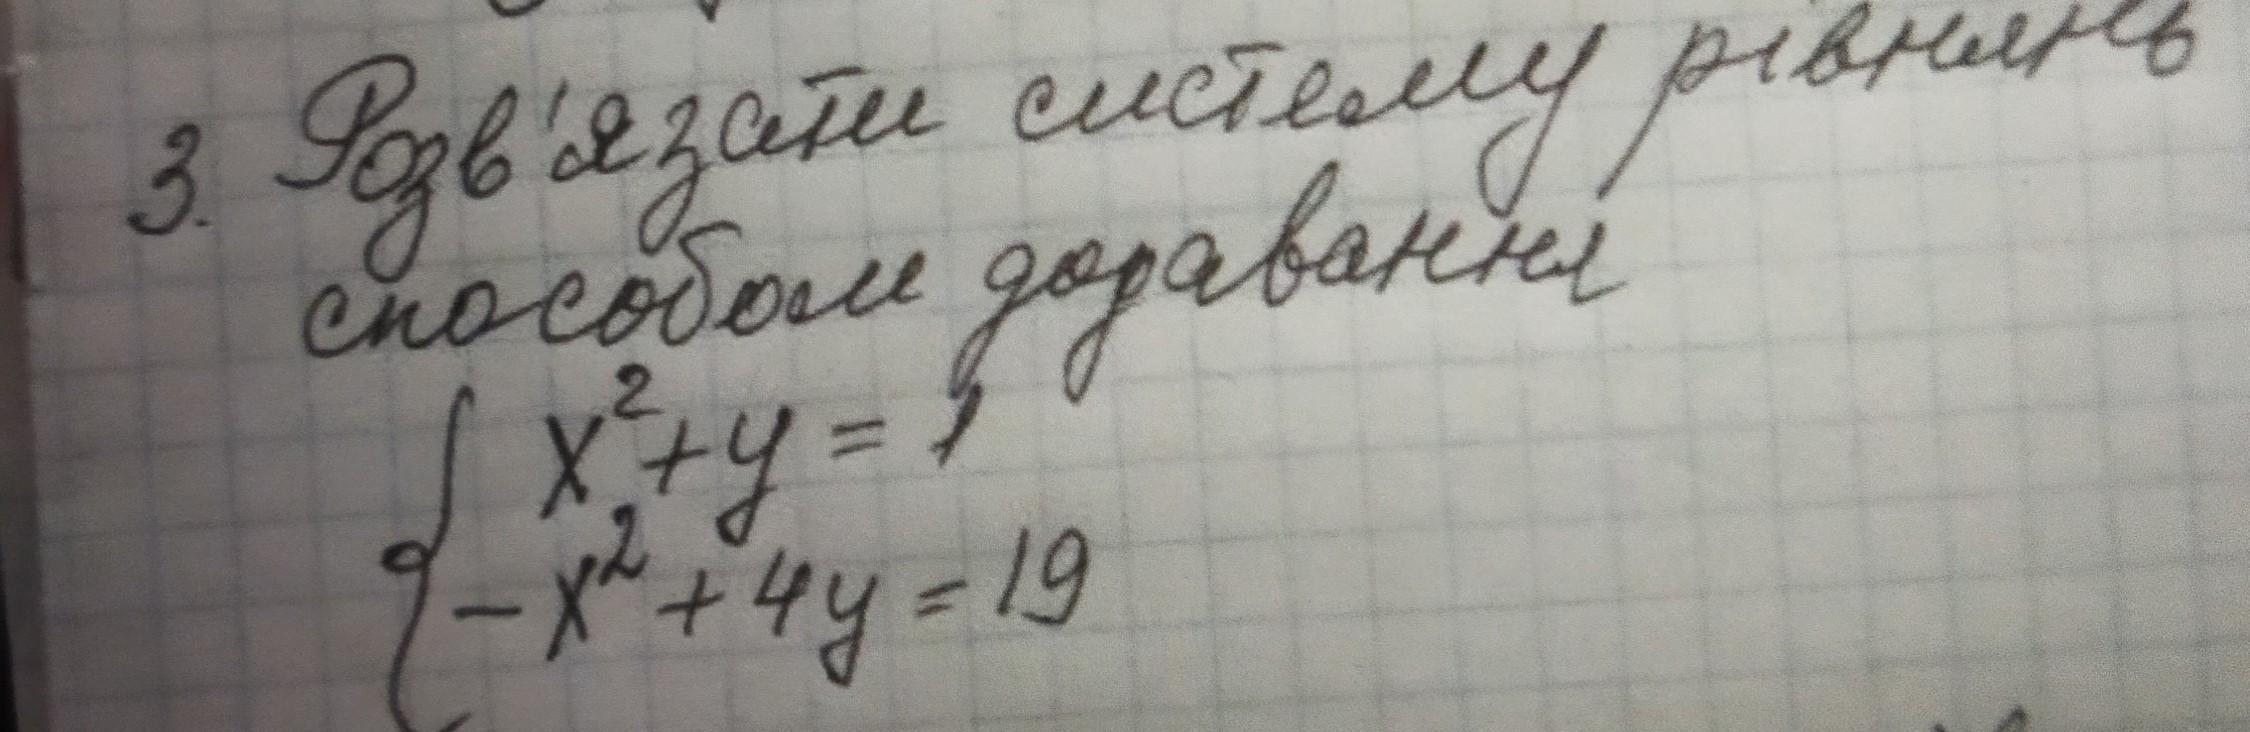 3. Розв'язати систему рівнянь
способом додавання
{ x² + y = 1
-x² + 4y = 19